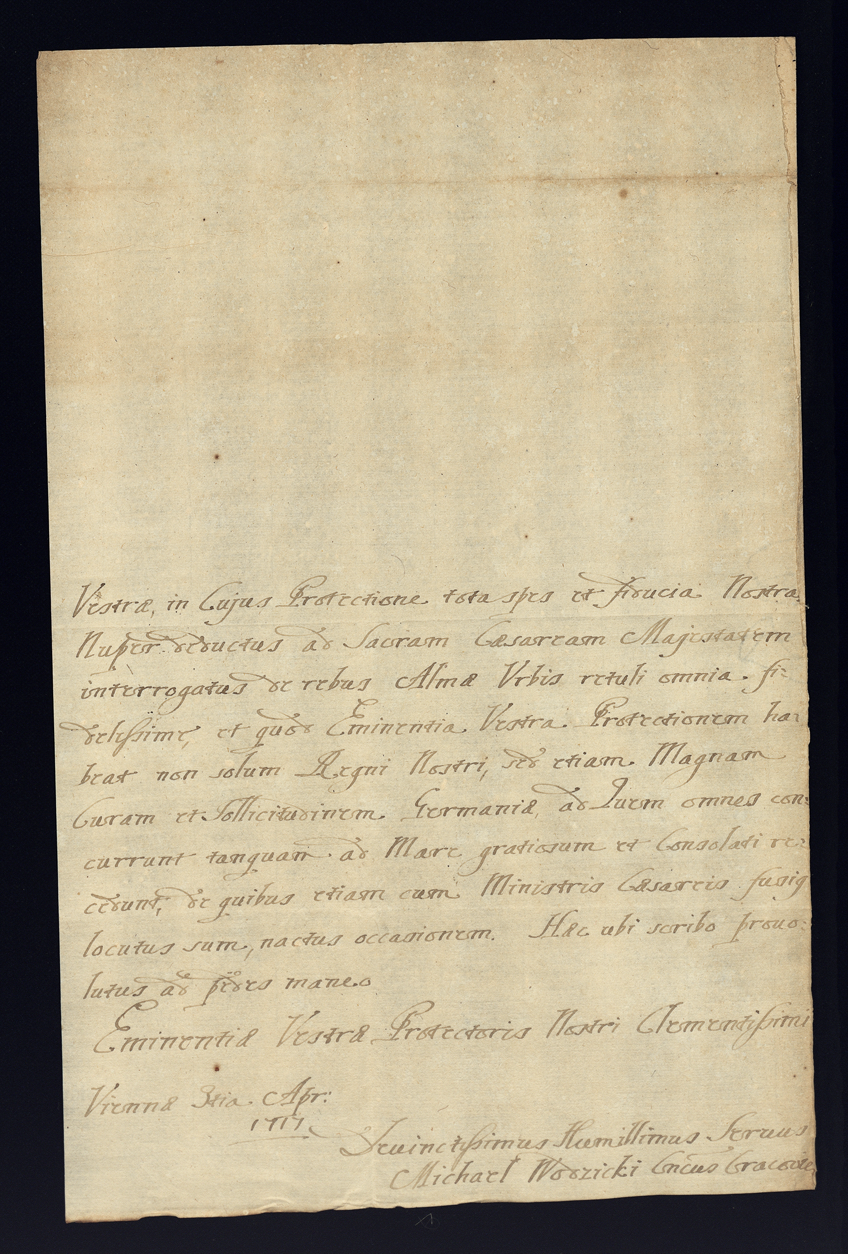 Vestræ, in Cujus Protectione tota spes et fiducia Nostra
Nuper deductus ad Sacram Cæsaream Majestatem
interrogatus de rebus Almæ Urbis retuli omnia fi-
delissime, et quod Eminentia Vestra Protectionem ha-
beat non solum Regni Nostri, sed etiam Magnam
Curam et Sollicitudinem Germaniæ, ad Quem omnes con-
currunt tanquam ad Mare gratiosum et Consolati re-
cedunt, de quibus etiam cum Ministris Cæsareis fusiq
locutus sum, nactus occasionem. Hæc ubi scribo provo-
lutus ad pedes maneo
Eminentiæ Vestræ Protectoris Nostri Clementissimi
Viennæ 3tia Apr:
1717
Devinctissimus Humillimus Servus
Michael Wodzicki Cncus Cracovie